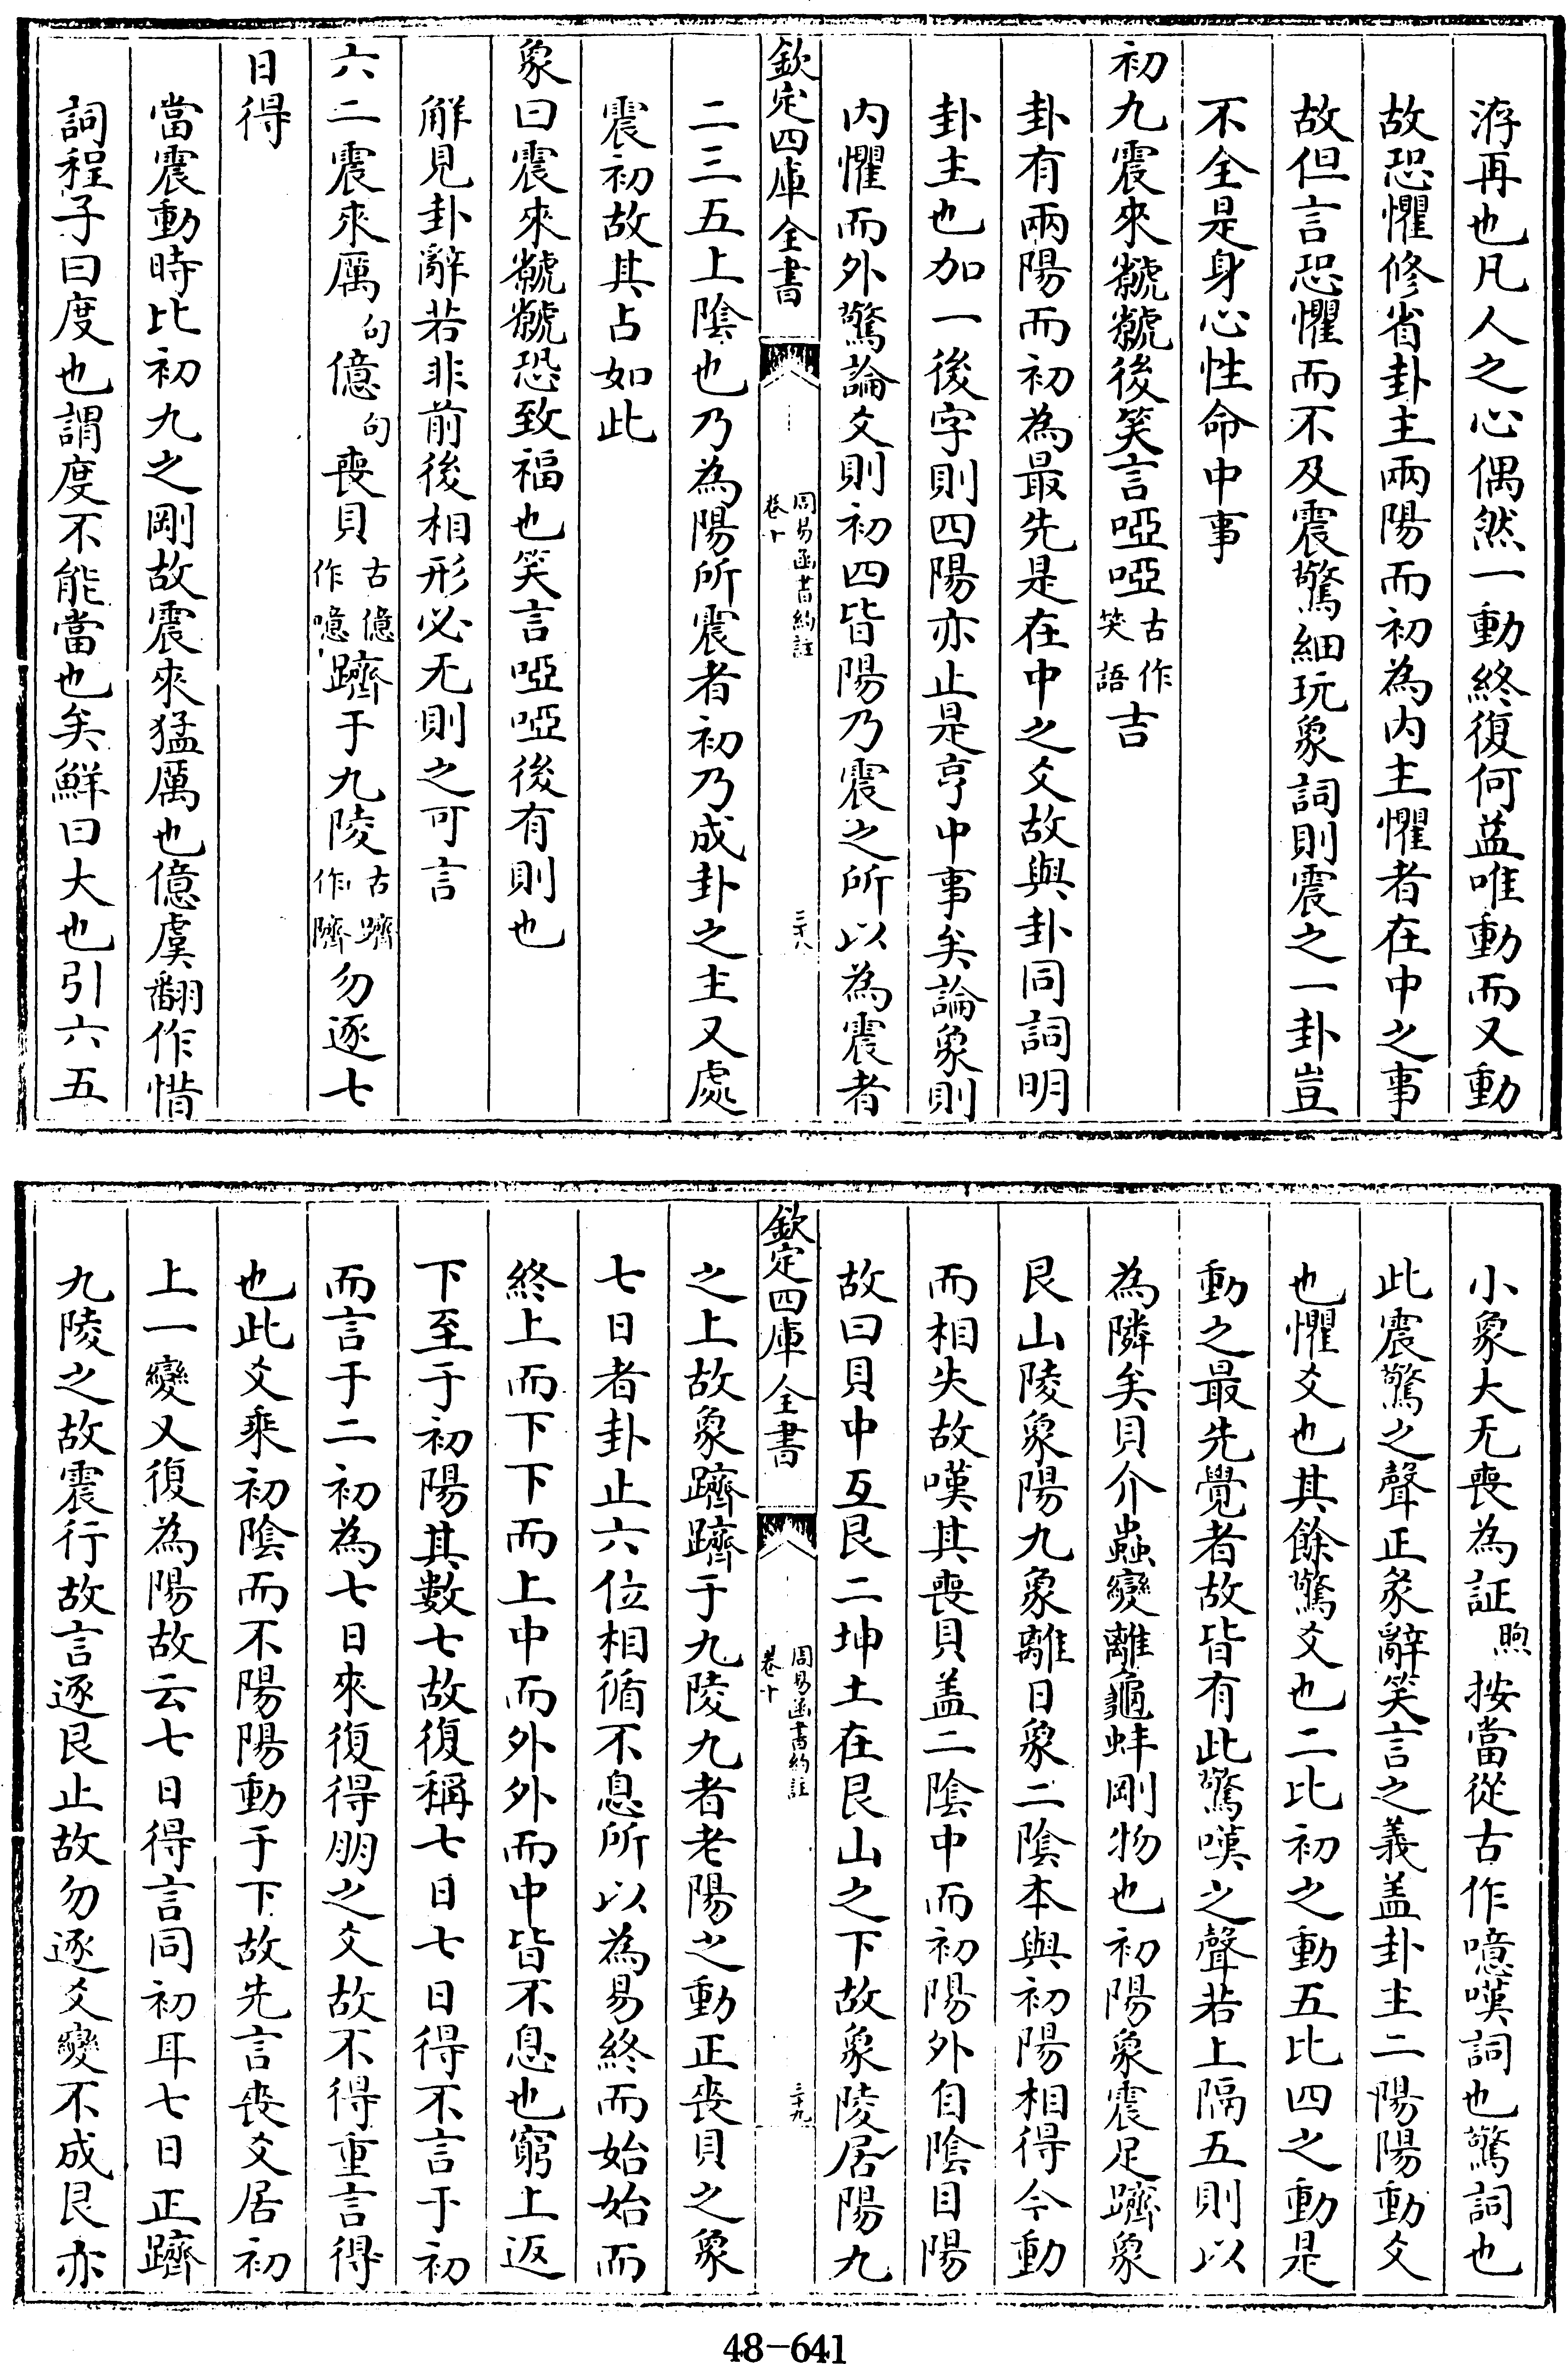 洊再也凡人之心偶然一動終復何益唯動而又動
故恐懼修省卦主兩陽而初為内主懼者在中之事
故但言恐懼而不及震驚細玩象詞則震之一卦豈
不全是身心性命中事
初九震來虩虩後笑言啞啞古作笑語吉
卦有兩陽而初為最先是在中之爻故與卦同詞明
卦主也加一後字則四陽亦止是亨中事矣論象則
内懼而外驚論爻則初四皆陽乃震之所以為震者
欽定四庫全書
周易函書約註
卷十
三十八
二三五上陰也乃為陽所震者初乃成卦之主又處
震初故其占如此
象曰震來虩虩恐致福也笑言啞啞後有則也
解見卦辭若非前後相形必无則之可言
六二震來厲句億句喪貝古億作噫躋于九陵古躋作隮勿逐七
日得
當震動時比初九之剛故震來猛厲也億虞翻作惜
詞程子曰度也謂度不能當也矣鮮曰大也引六五
小象大无喪為証煦按當從古作噫嘆詞也驚詞也
此震驚之聲正彖辭笑言之義盖卦主二陽陽動爻
也懼爻也其餘驚爻也二比初之動五比四之動是
動之最先覺者故皆有此驚嘆之聲若上隔五則以
為隣矣貝介蟲變離龜蚌剛物也初陽象震足躋象
艮山陵象陽九象離日象二陰本與初陽相得今動
而相失故嘆其喪貝盖二陰中而初陽外自陰目陽
故曰貝中互艮二坤土在艮山之下故象陵居陽九
欽定四庫全書
周易函書約註
卷十
三十九
之上故象躋躋于九陵九者老陽之動正喪貝之象
七日者卦止六位相循不息所以為易終而始始而
終上而下下而上中而外外而中皆不息也窮上返
下至于初陽其數七故復稱七日七日得不言于初
而言于二初為七日來復得朋之爻故不得重言得
也此爻乘初陰而不陽陽動于下故先言喪爻居初
上一變又復為陽故云七日得言同初耳七日正躋
九陵之故震行故言逐艮止故勿逐爻變不成艮亦
48-641